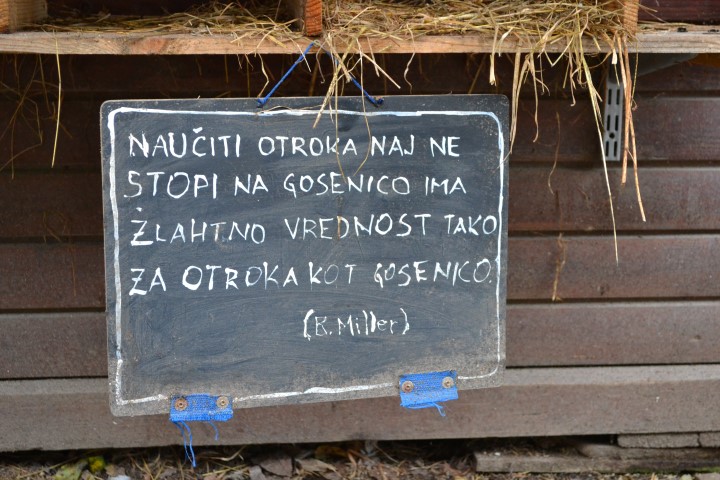 NAUČITI OTROKA NAJ NE
STOPI NA GOSENICO IMA
ŽLAHTNO VREDNOST TAKO
ZA OTROKA KOT GOSENICO.
(B. Miller)